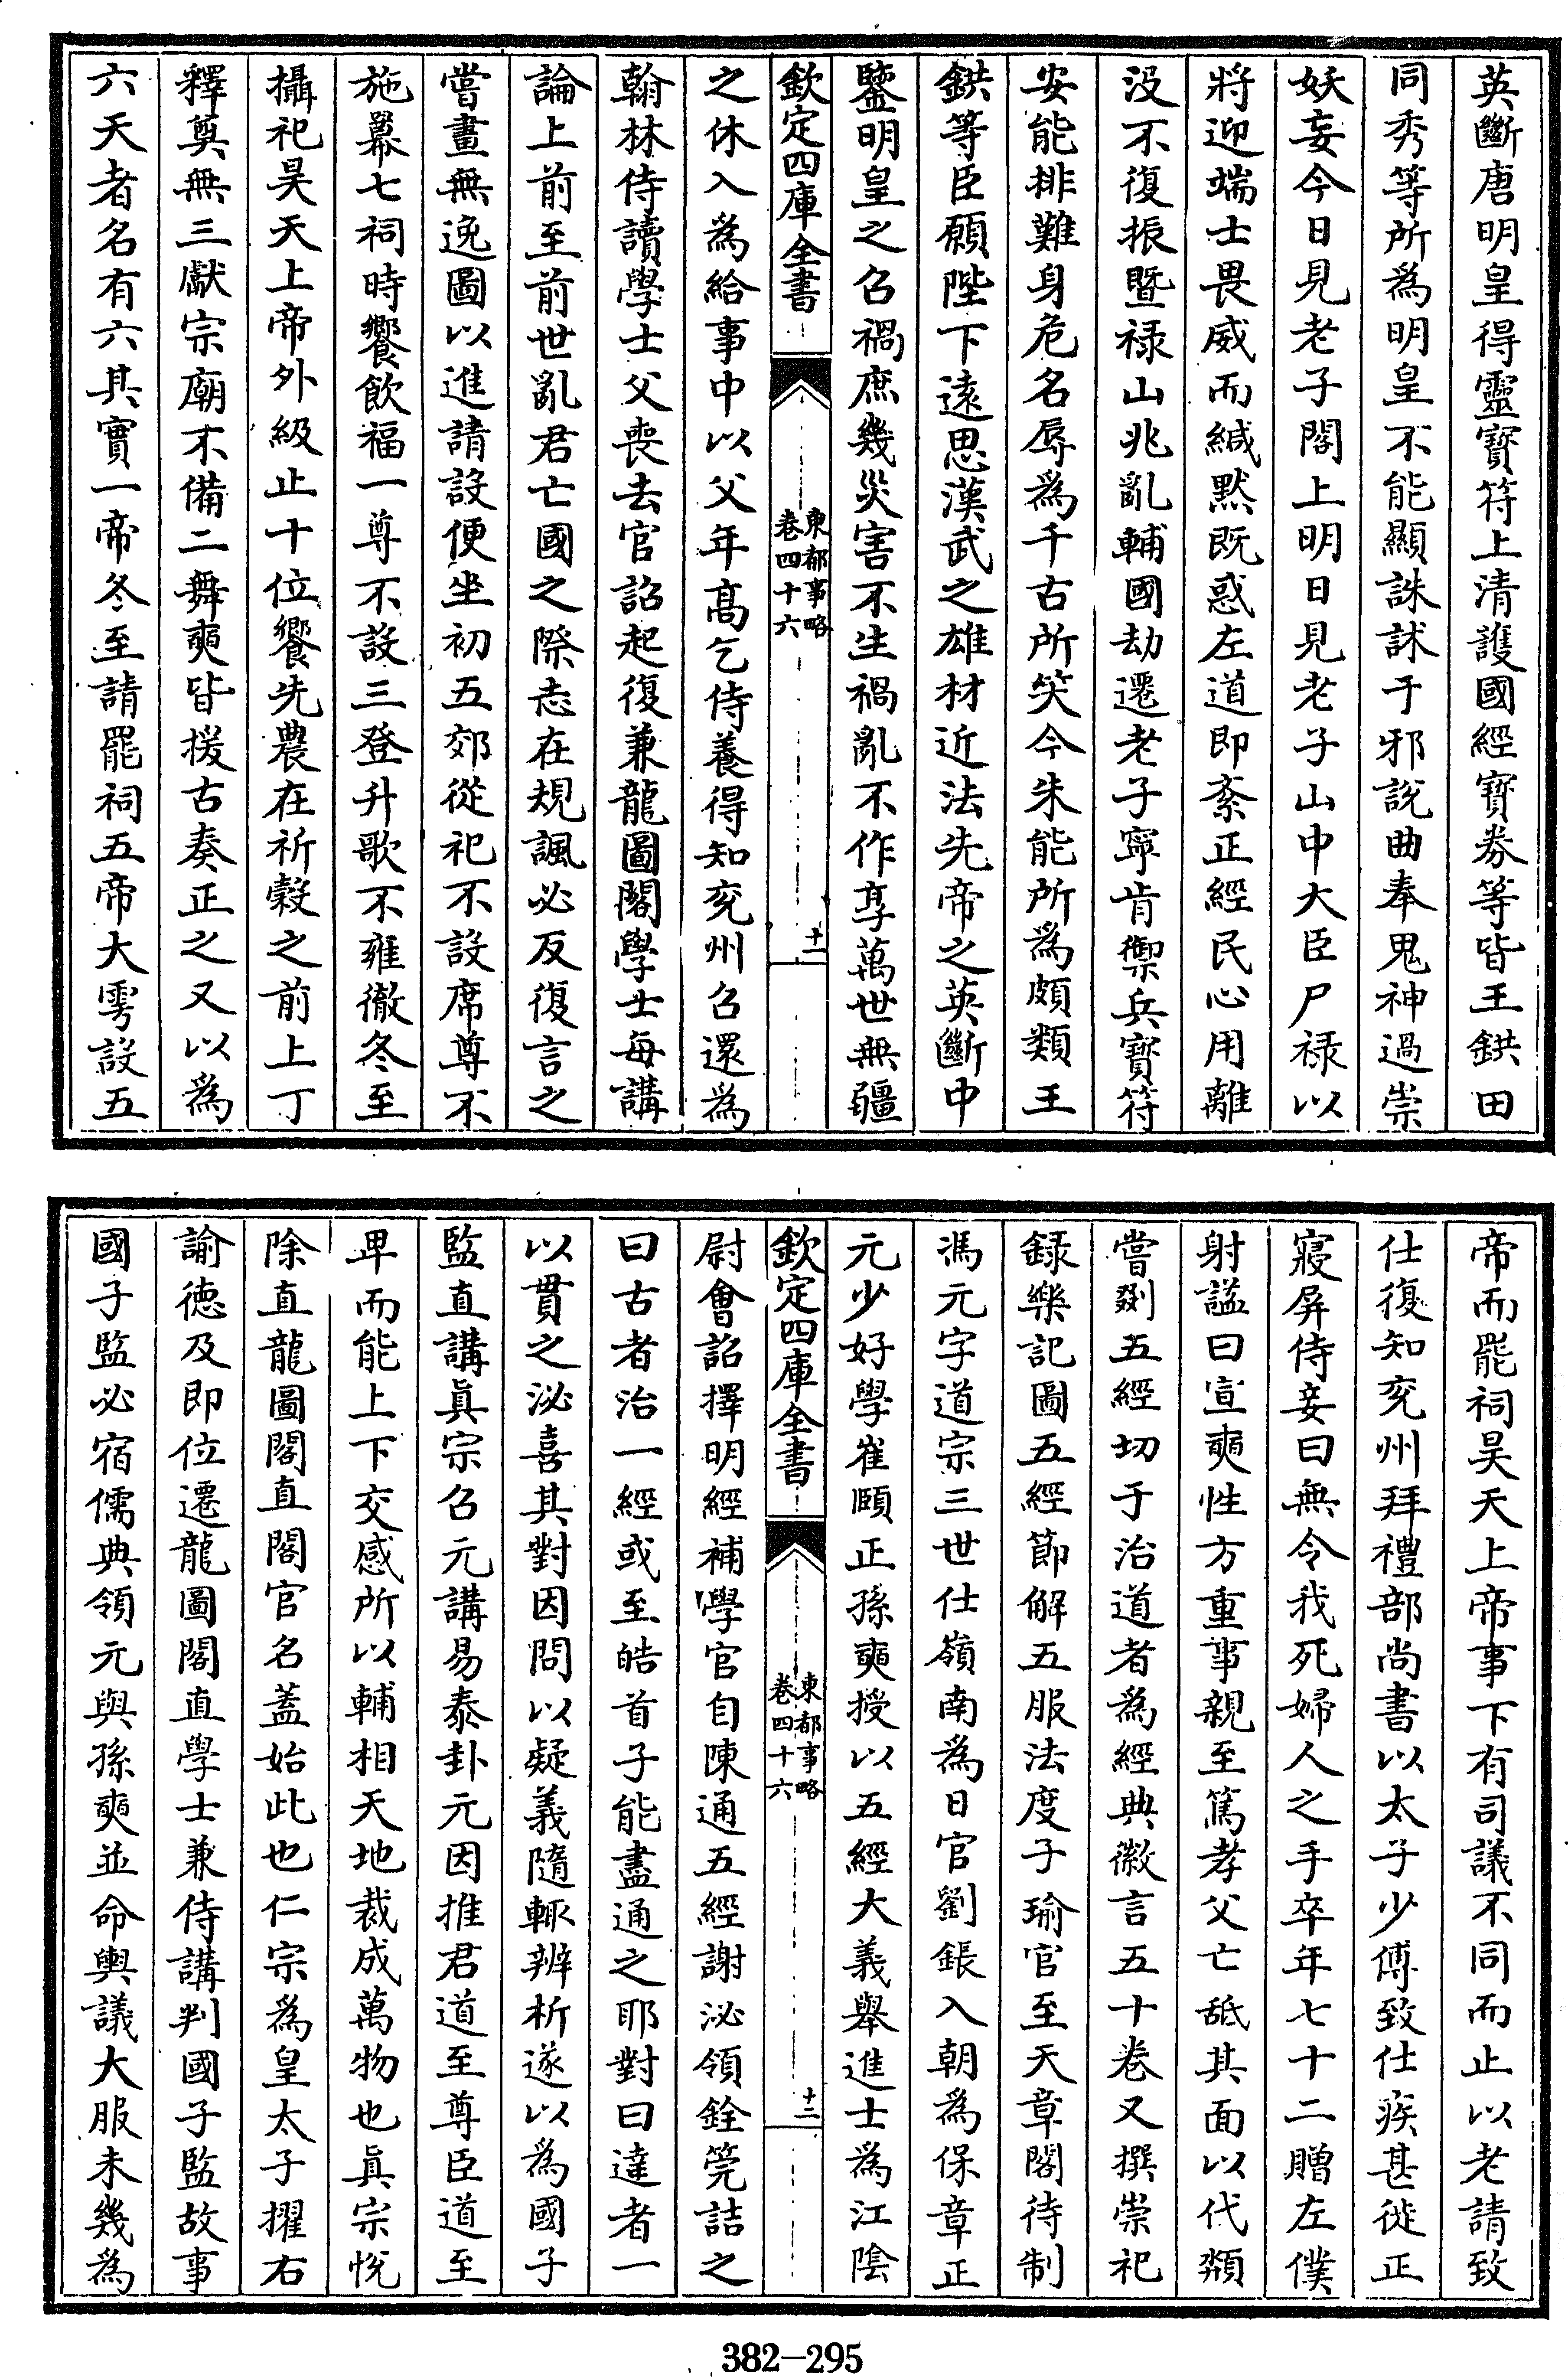 英斷唐明皇得靈寶符上清護國經寶券等皆王鉷田
同秀等所為明皇不能顯誅訹于邪說曲奉鬼神過崇
妖妄今日見老子閣上明日見老子山中大臣尸禄以
將迎端士畏威而緘默既惑左道即紊正經民心用離
没不復振暨禄山兆亂輔國劫遷老子寧肯禦兵寶符
安能排難身危名辱為千古所笑今朱能所為頗類王
鉷等臣願陛下遠思漢武之雄材近法先帝之英斷中
鑒明皇之召禍庶幾災害不生禍亂不作享萬世無疆
欽定四庫全書
東都事略
卷四十六
十一
之休入為給事中以父年髙乞侍養得知兖州召還為
翰林侍讀學士父喪去官詔起復兼龍圖閣學士每講
論上前至前世亂君亡國之際志在規諷必反復言之
嘗畫無逸圖以進請設便坐初五郊從祀不設席尊不
施羃七祠時饗飲福一尊不設三登升歌不雍徹冬至
攝祀昊天上帝外級止十位饗先農在祈穀之前上丁
釋奠無三獻宗廟不備二舞奭皆援古奏正之又以為
六天者名有六其實一帝冬至請罷祠五帝大雩設五
帝而罷祠昊天上帝事下有司議不同而止以老請致
仕復知兖州拜禮部尚書以太子少傅致仕疾甚徙正
寢屏侍妾曰無令我死婦人之手卒年七十二贈左僕
射謚曰宣奭性方重事親至篤孝父亡䑛其面以代頮
嘗剟五經切于治道者為經典徽言五十卷又撰崇祀
録樂記圖五經節解五服法度子瑜官至天章閣待制
馮元字道宗三世仕嶺南為日官劉鋹入朝為保章正
元少好學崔頤正孫奭授以五經大義舉進士為江隂
欽定四庫全書
東都事略
卷四十六
十二
尉會詔擇明經補學官自陳通五經謝泌領銓筦詰之
曰古者治一經或至皓首子能盡通之耶對曰達者一
以貫之泌喜其對因問以疑義隨輒辨析遂以為國子
監直講眞宗召元講易泰卦元因推君道至尊臣道至
卑而能上下交感所以輔相天地裁成萬物也眞宗悦
除直龍圖閣直閣官名蓋始此也仁宗為皇太子擢右
諭徳及即位遷龍圖閣直學士兼侍講判國子監故事
國子監必宿儒典領元與孫奭並命輿議大服未幾為
382-295